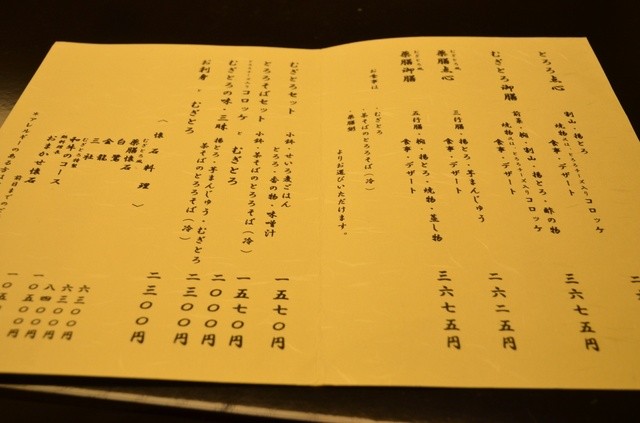 とろろ点心
割山・揚とろ
焼物又は、とろろチーズ入りコロッケ
食事・デザート
三六七五円
むぎとろ御膳
前菜・椀・割山・揚とろ・酢の物
焼物又は、とろろチーズ入りコロッケ
食事・デザート
二六二五円
むぎとろ風
薬膳点心
三行膳・揚とろ・芋まんじゅう
食事・デザート
三六七五円
むぎとろ風
薬膳御膳
五行膳・椀・揚とろ・焼物・蒸し物
食事・デザート
お食事は
・むぎとろ
・茶そばのとろろそば(冷)
・薬膳粥
よりお選びいただけます。
むぎとろセット
小鉢・せいろ麦ごはん
とろろ・香の物・味噌汁
一五七〇円
とろろそばセット
小鉢・茶そばのとろろそば(冷)
一五七〇円
とろろチーズ入り
コロッケ と むぎとろ
二〇〇〇円
むぎとろの味・三昧
揚とろ・芋まんじゅう・むぎとろ
茶そばのとろろそば(冷)
二三〇〇円
お刺身 と むぎとろ
二三〇〇円
〈 懐石料理 〉
むぎとろ風
薬膳懐石
白鷺
六三〇〇円
金龍
六三〇〇円
三社
八四〇〇円
むぎとろ特製
和牛のコース
一〇五〇〇円
おまかせ懐石
一〇五〇
※アレルギーのある方
前日までの